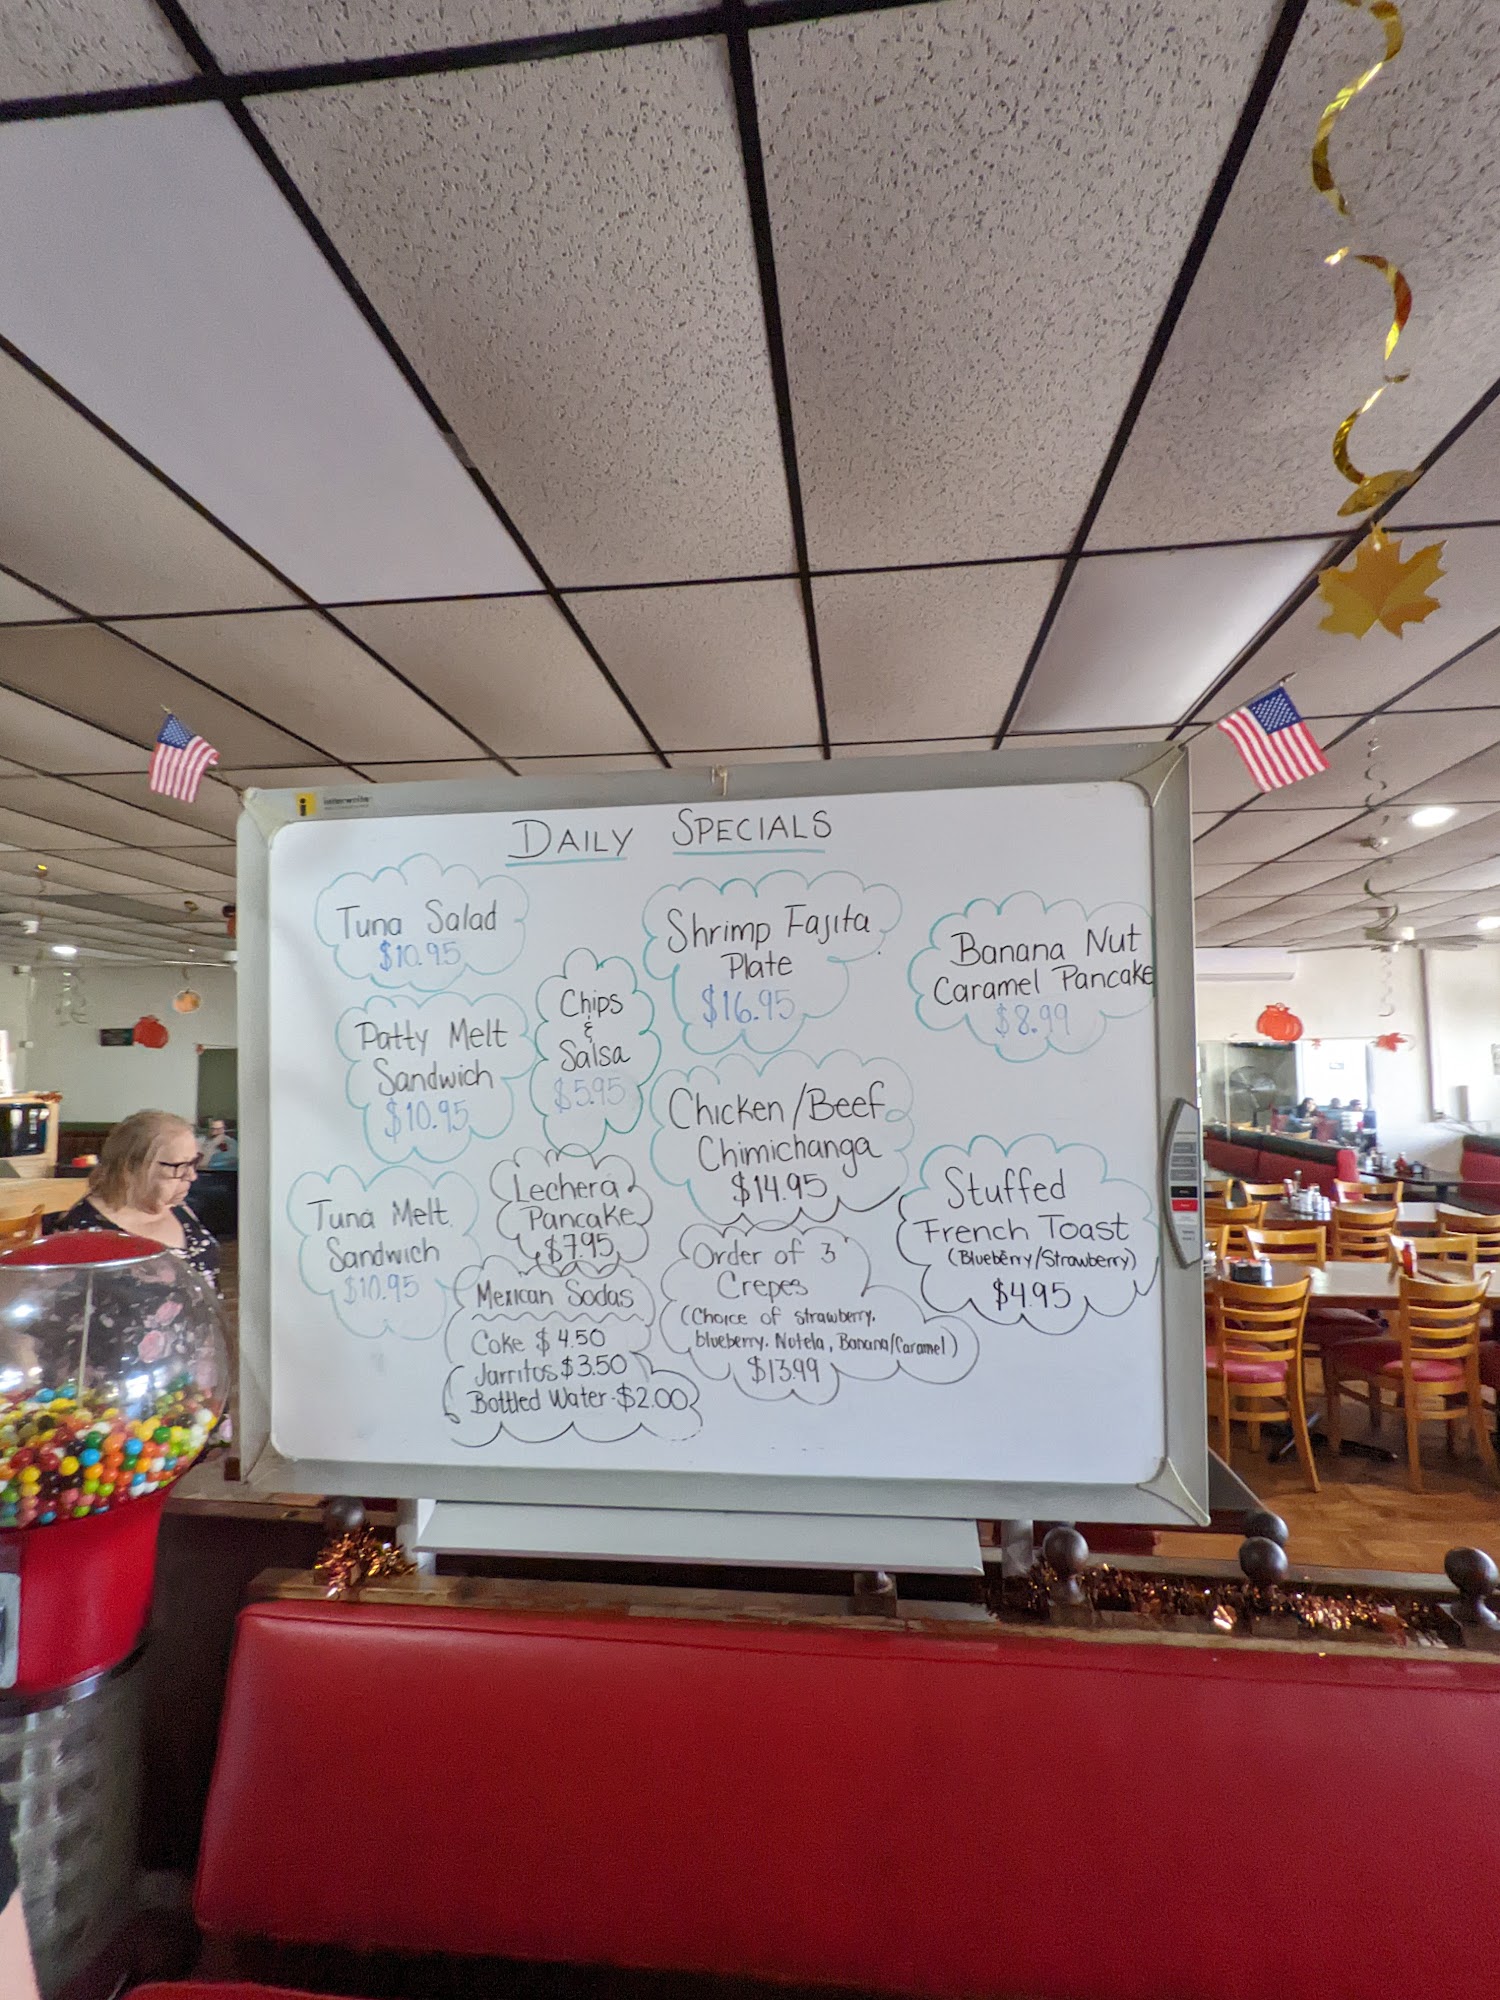 interwrite
DAILY SPECIALS
Tuna Salad
$10.95
Patty Melt
Sandwich
$10.95
Tuna Melt
Sandwich
$10.95
Chips
&
Salsa
$5.95
Lechera
Pancake
$7.95
Mexican Sodas
Coke $4.50
Jarritos $3.50
Bottled Water-$2.00
Shrimp Fajita
Plate
$16.95
Chicken/Beef
Chimichanga
$14.95
Order of 3
Crepes
(Choice of strawberry,
blueberry. Nutela, Banana/Caramel)
$13.99
Banana Nut
Caramel Pancake
$8.99
Stuffed
French Toast
(Blueberry/Strawberry)
$4.95